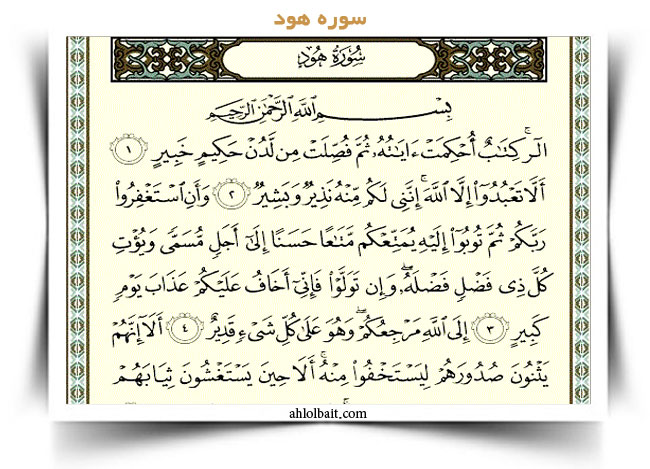 سوره هود
سُورَةُ هُودٍ
بِسْمِ اللَّهِ الرَّحْمَٰنِ الرَّحِيمِ
الٓر ۚ كِتَٰبٌ أُحْكِمَتْ ءَايَٰتُهُۥ ثُمَّ فُصِّلَتْ مِن لَّدُنْ حَكِيمٍ خَبِيرٍ ١
أَلَّا تَعْبُدُوٓا۟ إِلَّا ٱللَّهَ ۚ إِنَّنِى لَكُم مِّنْهُ نَذِيرٌ وَبَشِيرٌ ٢ وَأَنِ ٱسْتَغْفِرُوا۟
رَبَّكُمْ ثُمَّ تُوبُوٓا۟ إِلَيْهِ يُمَتِّعْكُم مَّتَٰعًا حَسَنًا إِلَىٰٓ أَجَلٍ مُّسَمًّى وَيُؤْتِ
كُلَّ ذِى فَضْلٍ فَضْلَهُۥ ۖ وَإِن تَوَلَّوْا۟ فَإِنِّىٓ أَخَافُ عَلَيْكُمْ عَذَابَ يَوْمٍ
كَبِيرٍ ٣ إِلَى ٱللَّهِ مَرْجِعُكُمْ ۖ وَهُوَ عَلَىٰ كُلِّ شَىْءٍ قَدِيرٌ ٤ أَلَآ إِنَّهُمْ
يَثْنُونَ صُدُورَهُمْ لِيَسْتَخْفُوا۟ مِنْهُ ۚ أَلَا حِينَ يَسْتَغْشُونَ ثِيَابَهُمْ
ahlolbait.com